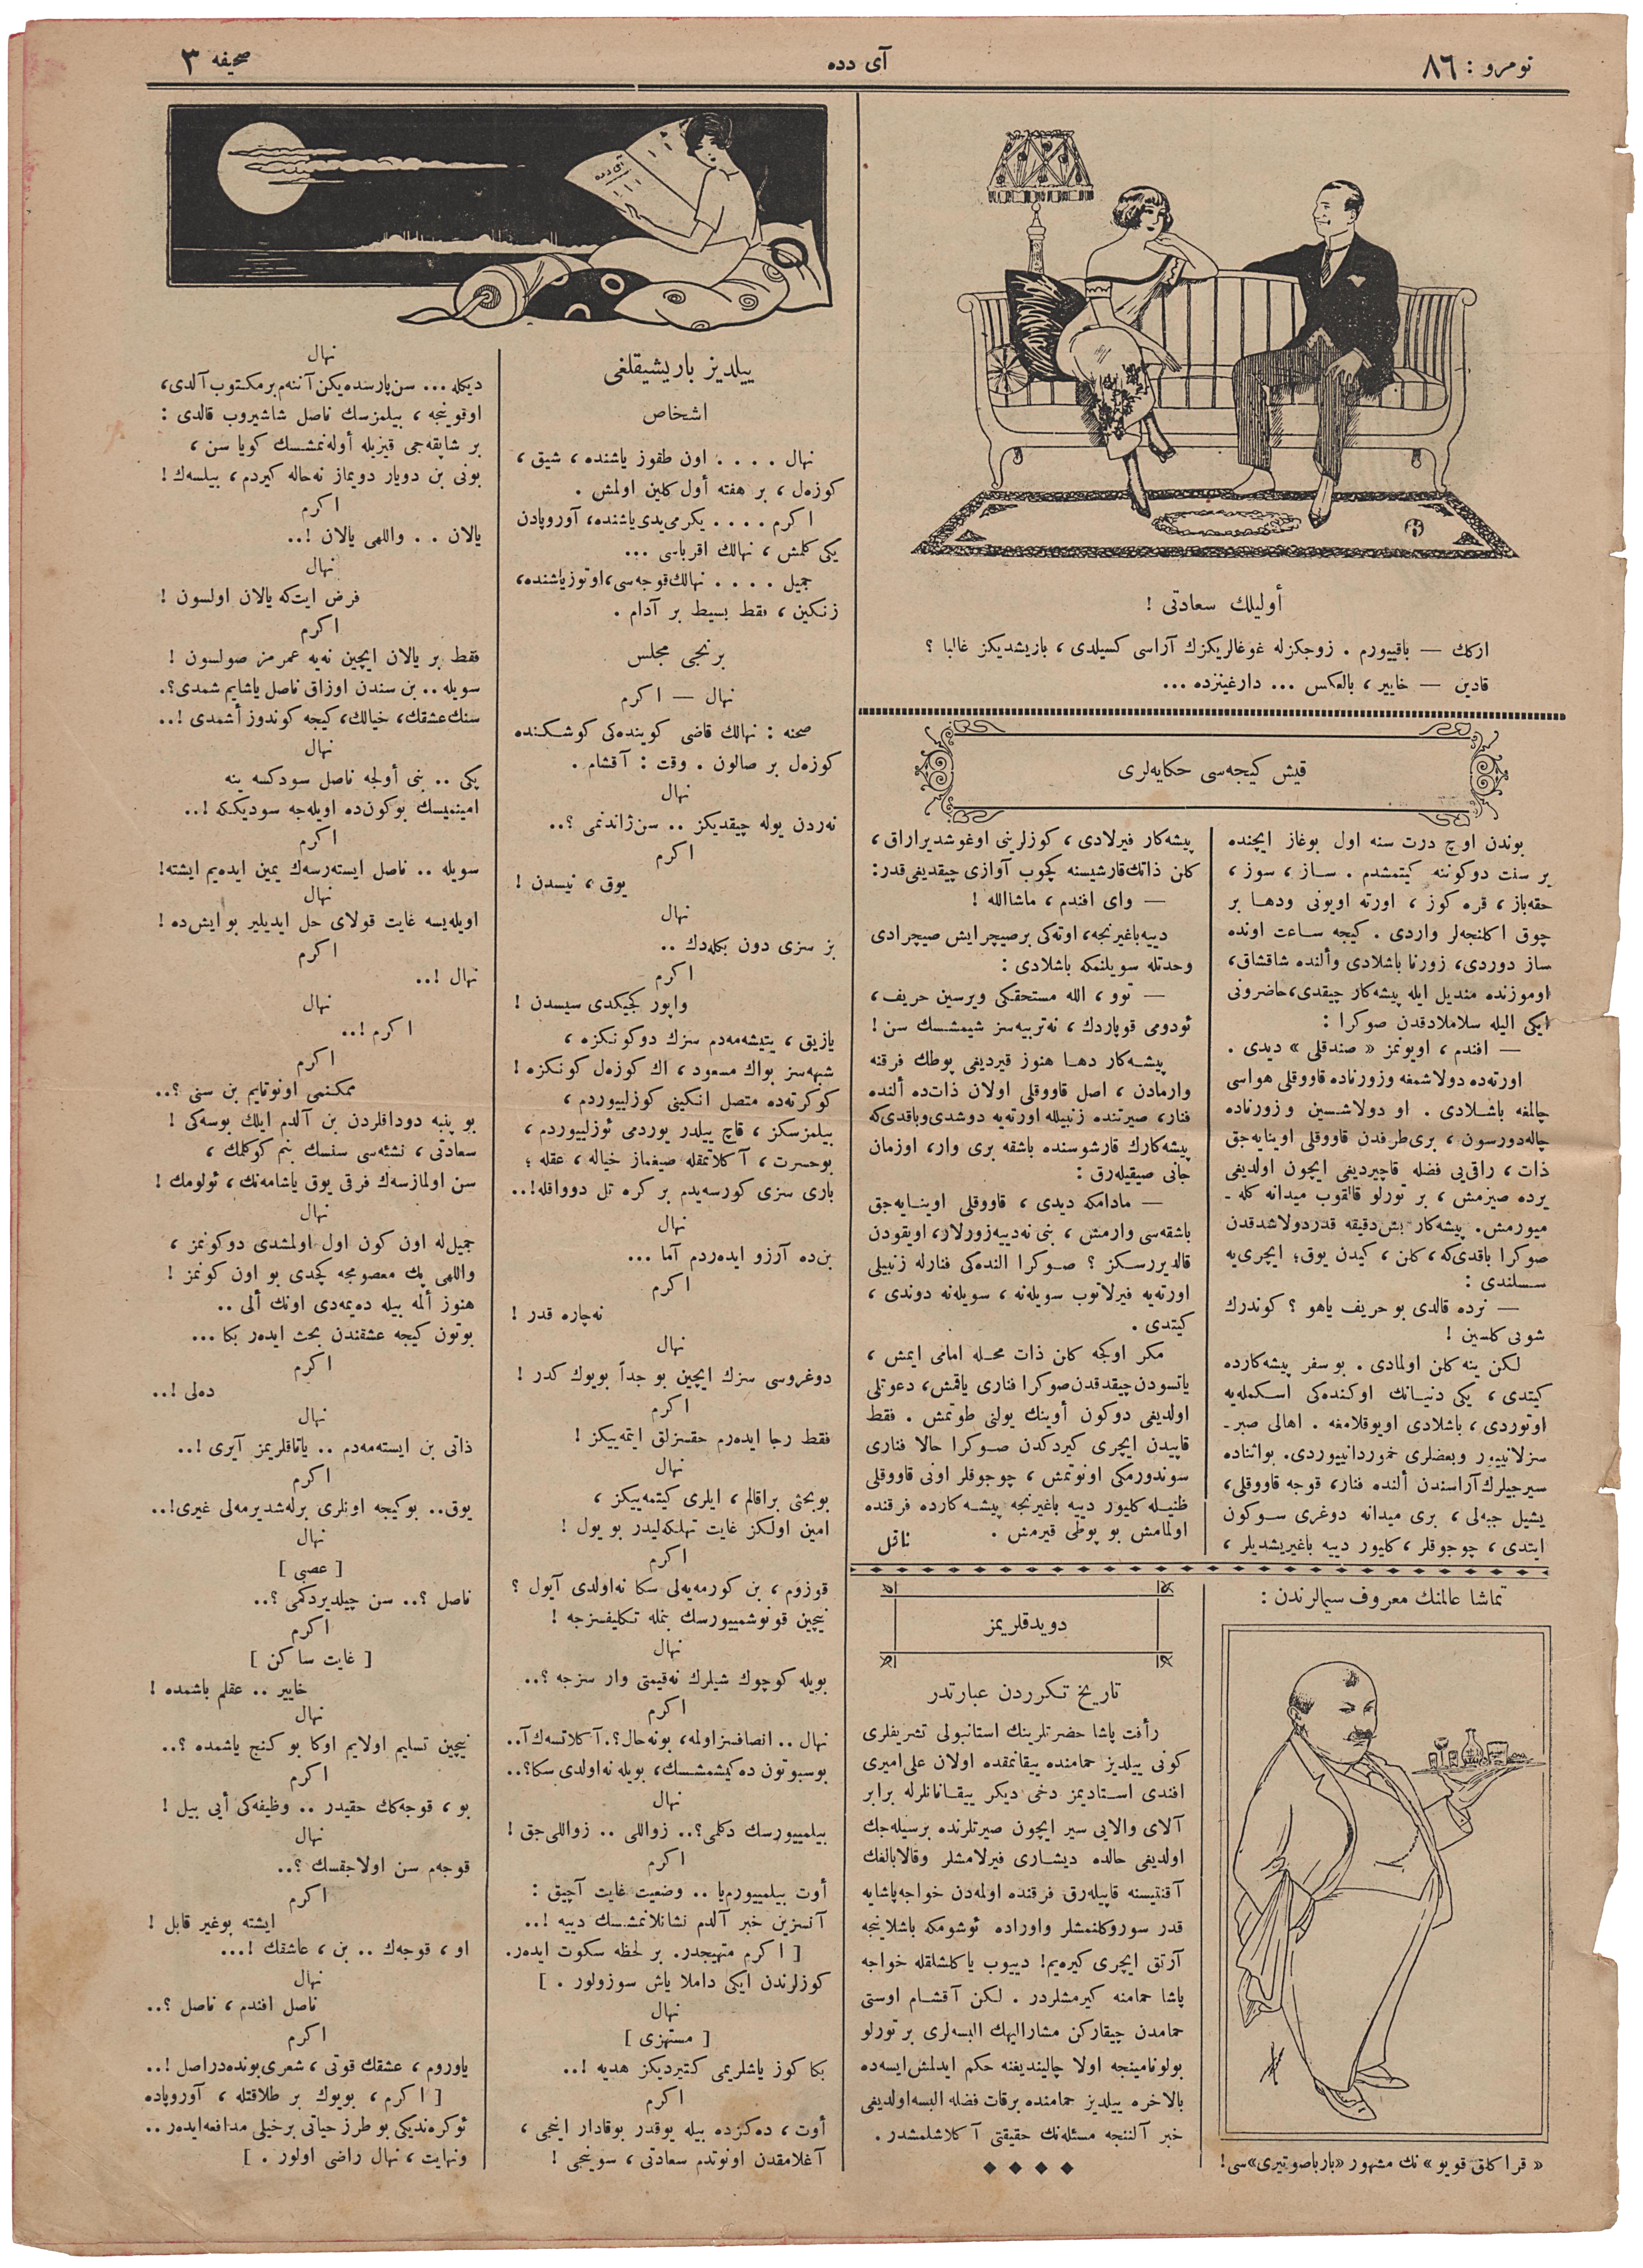 نومرو : ٨٦
آی دده
صحیفه ٣
أولیلك سعادتی !
اركك — باقییورم . زوجكزله غوغالریكزك آراسی كسیلدی ، باریشدیكز غالبا ؟
قادین — خایر ، بالعكس ... دارغینزده ...
قیش كیجه‌سی حكایه‌لری
بوندن اوچ درت سنه اول بوغاز ایچنده
بر سنت دوكوننه كیتمشدم . ساز ، سوز ،
حقه‌باز ، قره كوز ، اورته اویونی ودها بر
چوق اكلنجه‌لر واردی . كیجه ساعت اونده
ساز دوردی، زورنا باشلادی وألنده شاقشاق،
اوموزنده مندیل ایله پیشه‌كار چیقدی، حاضرونی
ایكی الیله سلاملادقدن صوكرا :
— افندم ، اویونمز « صندقلی » دیدی .
اورته‌ده دولاشمغه وزورناده قاووقلی هواسی
چالمغه باشلادی . او دولاشسین وزورناده
چاله‌دورسون ، بری‌طرفدن قاووقلی اوینایه‌جق
ذات ، راقی‌یی فضله قاچیردیغی ایچون اولدیغی
یرده صیزمش ، بر تورلو قالقوب میدانه كله ـ
میورمش. پیشه‌كار بش‌دقیقه قدردولاشدقدن
صوكرا باقدی‌كه ، كلن ، كیدن یوق؛ ایچری‌یه
سسلندی :
— نرده قالدی بو حریف یاهو ؟ كوندرك
شونی كلسین !
لكن ینه كلن اولمادی . بو سفر پیشه‌كارده
كیتدی ، یكی دنیانك اوكنده‌كی اسكمله‌یه
اوتوردی ، باشلادی اویوقلامغه . اهالی صبر ـ
سزلانییور وبعضلری خموردانییوردی. بواثناده
سیرجیلرك آراسندن ألنده فنار، قوجه قاووقلی،
یشیل جبه‌لی ، بری میدانه دوغری سوكون
ایتدی ، چوجوقلر ، كلیور دییه باغیریشدیلر ،
پیشه‌كار فیرلادی ، كوزلرینی اوغوشدیراراق ،
كلن ذاتك‌قارشیسنه كچوب آوازی چیقدیغی‌قدر:
— وای افندم ، ماشاالله !
دییه‌باغیرنجه، اوته‌كی برصیچرایش صیچرادی
وحدتله سویلنمكه باشلادی :
— توو ، الله مستحقكی ویرسین حریف،
ئودومی قوپاردك ، نه‌تربیه‌سز شیمشسك سن!
پیشه‌كار دها هنوز قیردیغی پوطك فرقنه
وارمادن ، اصل قاووقلی اولان ذات‌ده ألنده
فنار، صیرتنده زنبیلله اورته‌یه دوشدی‌وباقدی‌كه
پیشه‌كارك قارشوسنده باشقه بری وار، اوزمان
جانی صیقیله‌رق :
— مادامكه دیدی ، قاووقلی اوینایه‌جق
باشقه‌سی وارمش ، بنی نه‌دییه‌زورلار، اویقودن
قالدیررسكز ؟ صوكرا النده‌كی فنارله زنبیلی
اورته‌یه فیرلاتوب سویله‌نه ، سویله‌نه دوندی ،
كیتدی .
مكر اوكجه كلن ذات محله امامی ایمش ،
یاتسودن‌چیقدقدن‌صوكرا فناری یاقمش، دعوتلی
اولدیغی دوكون أوینك یولنی طوتمش . فقط
قاپیدن ایچری كیردكدن صوكرا حالا فناری
سوندورمكی اونوتمش ، چوجوقلر اونی قاووقلی
ظنیله كلیور دییه باغیرنجه پیشه‌كارده فرقنده
اولمامش بو پوطی قیرمش .
ناقل
تماشا عالمنك معروف سیمالرندن :
« قراكلق قویو » نك مشهور «بارباصوتیری»سی!
دویدقلریمز
تاریخ تكرردن عبارتدر
رأفت پاشا حضرتلرینك استانبولی تشریفلری
كونی ییلدیز حمامنده ییقانمقده اولان علی‌امیری
افندی استادیمز دخی دیكر ییقانانلرله برابر
آلای والایی سیر ایچون صیرتلرنده برسیله‌جك
اولدیغی حالده دیشاری فیرلامشلر وقالابالغك
آقنتیسنه قاپیله‌رق فرقنده اولمه‌دن خواجه‌پاشایه
قدر سوروكلنمشلر واوراده ئوشومكه باشلانجه
آرتق ایچری كیره‌یم! دییوب یاكلشلقله خواجه
پاشا حمامنه كیرمشلردر . لكن آقشام اوستی
حمامدن چیقاركن مشارالیهك البسه‌لری برتورلو
بولونامینجه اولا چالیندیغنه حكم ایدلمش‌ایسه‌ده
بالاخره ییلدیز حمامنده برقات فضله البسه‌اولدیغی
خبر آلننجه مسئله‌نك حقیقتی آكلاشلمشدر .
ییلدیز باریشیقلغی
اشخاص
نهال . . . . اون طقوز یاشنده ، شیق ،
كوزه‌ل ، بر هفته أول كلین اولمش .
اكرم . . . . یكرمی‌یدی‌یاشنده، آوروپادن
یكی كلمش ، نهالك اقرباسی ...
جمیل . . . . نهالك‌قوجه‌سی، اوتوزیاشنده،
زنكین ، فقط بسیط بر آدام .
برنجی مجلس
نهال — اكرم
صحنه : نهالك قاضی كوینده‌كی كوشكنده
كوزه‌ل بر صالون . وقت : آقشام .
نهال
نه‌ردن یوله چیقدیكز .. سن‌ژاندنمی ؟..
اكرم
یوق ، نیسدن !
نهال
بز سزی دون بكله‌دك ..
اكرم
واپور كجیكدی سیسدن !
یازیق ، یتیشه‌مه‌دم سزك دوكونكزه ،
شبهه‌سز بواك مسعود ، اك كوزه‌ل كونكزه !
كوكرته‌ده متصل انكینی كوزلییوردم ،
بیلمزسكز ، قاچ ییلدر یوردمی ئوزلییوردم ،
بوحسرت ، آكلاتمقله صیغماز خیاله ، عقله ؛
باری سزی كورسه‌یدم بر كره تل دوواقله!..
نهال
بن‌ده آرزو ایده‌ردم آما ...
اكرم
نه‌چاره قدر !
نهال
دوغروسی سزك ایچین بو جداً بویوك كدر !
اكرم
فقط رجا ایده‌رم حقسزلق ایتمه‌ییكز !
نهال
بوبحثی براقالم ، ایلری كیتمه‌ییكز ،
امین اولكز غایت تهلكه‌لیدر بو یول !
اكرم
قوزوم ، بن كورمه‌یه‌لی سكا نه‌اولدی آیول ؟
نیچین قونوشمییورسك بنمله تكلیفسزجه !
نهال
بویله كوچوك شیلرك نه‌قیمتی وار سزجه ؟..
اكرم
نهال .. انصافسزاولمه، بونه‌حال؟.آكلاتسه‌ك‌آ..
بوسبوتون ده‌كیشمشسك، بویله نه‌اولدی سكا؟..
نهال
بیلمییورسك دكلمی؟.. زواللی .. زواللی‌جق !
اكرم
أوت بیلمییورم‌یا .. وضعیت غایت آچیق :
آنسزین خبر آلدم نشانلانمشسك دییه !..
[ اكرم متهیجدر. بر لحظه سكوت ایده‌ر.
كوزلرندن ایكی داملا یاش سوزولور . ]
نهال
[ مستهزی ]
بكا كوز یاشلریمی كتیردیكز هدیه !..
اكرم
أوت ، ده‌كزده بیله یوقدر بوقادار اینجی ،
آغلامقدن اونوتدم سعادتی ، سوینجی !
نهال
دیكله ... سن‌پارسده‌یكن‌آننه‌م‌برمكتوب‌آلدی،
اوقوینجه ، بیلمزسك ناصل شاشیروب قالدی :
بر شاپقه‌جی قیزیله أوله‌نمشسك كویا سن ،
بونی بن دویار دویماز نه‌حاله كیردم ، بیلسه‌ك !
اكرم
یالان . . واللهی یالان !..
نهال
فرض ایت‌كه یالان اولسون !
اكرم
فقط بر یالان ایچین نه‌یه عمرمز صولسون !
سویله .. بن سندن اوزاق ناصل یاشایم شمدی؟.
سنك‌عشقك، خیالك، كیجه كوندوز أشمدی !..
نهال
پكی .. بنی أولجه ناصل سودكسه ینه
امینمیسك بوكون‌ده اویله‌جه سودیككه !..
اكرم
سویله .. ناصل ایسته‌رسه‌ك یمین ایده‌یم ایشته!
نهال
اویله‌یسه غایت قولای حل ایدیلیر بو ایش‌ده !
اكرم
نهال !..
نهال
اكرم !..
اكرم
ممكنمی اونوتایم بن سنی ؟..
بو پنبه دوداقلردن بن آلدم ایلك بوسه‌كی !
سعادتی ، نشئه‌سی سنسك بنم كوكلمك ،
سن اولمازسه‌ك فرقی یوق یاشامه‌نك ، ئولومك !
نهال
جمیل‌له اون كون اول اولمشدی دوكونمز ،
واللهی پك معصومجه كچدی بو اون كونمز !
هنوز ألمه بیله ده‌یمه‌دی اونك ألی ..
بوتون كیجه عشقندن بحث ایده‌ر بكا ...
اكرم
ده‌لی !..
نهال
ذاتی بن ایسته‌مه‌دم .. یاتاقلریمز آیری !..
اكرم
یوق.. بوكیجه اونلری برله‌شدیرمه‌لی غیری!..
نهال
[ عصبی ]
ناصل ؟.. سن چیلدیردكمی ؟..
اكرم
[ غایت ساكن ]
خایر .. عقلم باشمده !
نهال
نیچین تسلیم اولایم اوكا بو كنج یاشمده ؟..
اكرم
بو ، قوجه‌كك حقیدر .. وظیفه‌كی أیی بیل !
نهال
قوجه‌م سن اولاجقسك ؟..
اكرم
ایشته بوغیر قابل !
او ، قوجه‌ك .. بن ، عاشقك !...
نهال
ناصل افندم ، ناصل ؟..
اكرم
یاوروم ، عشقك قوتی ، شعری‌بونده‌دراصل !..
[ اكرم ، بویوك بر طلاقتله ، آوروپاده
ئوكره‌ندیكی بو طرز حیاتی برخیلی مدافعه‌ایده‌ر ..
ونهایت ، نهال راضی اولور . ]